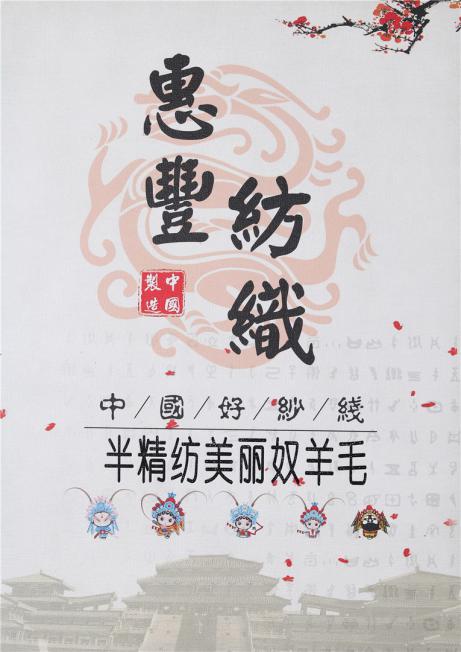 惠豐
紡織
中國
製造
中/國/好/紗/綫
半精纺美丽奴羊毛